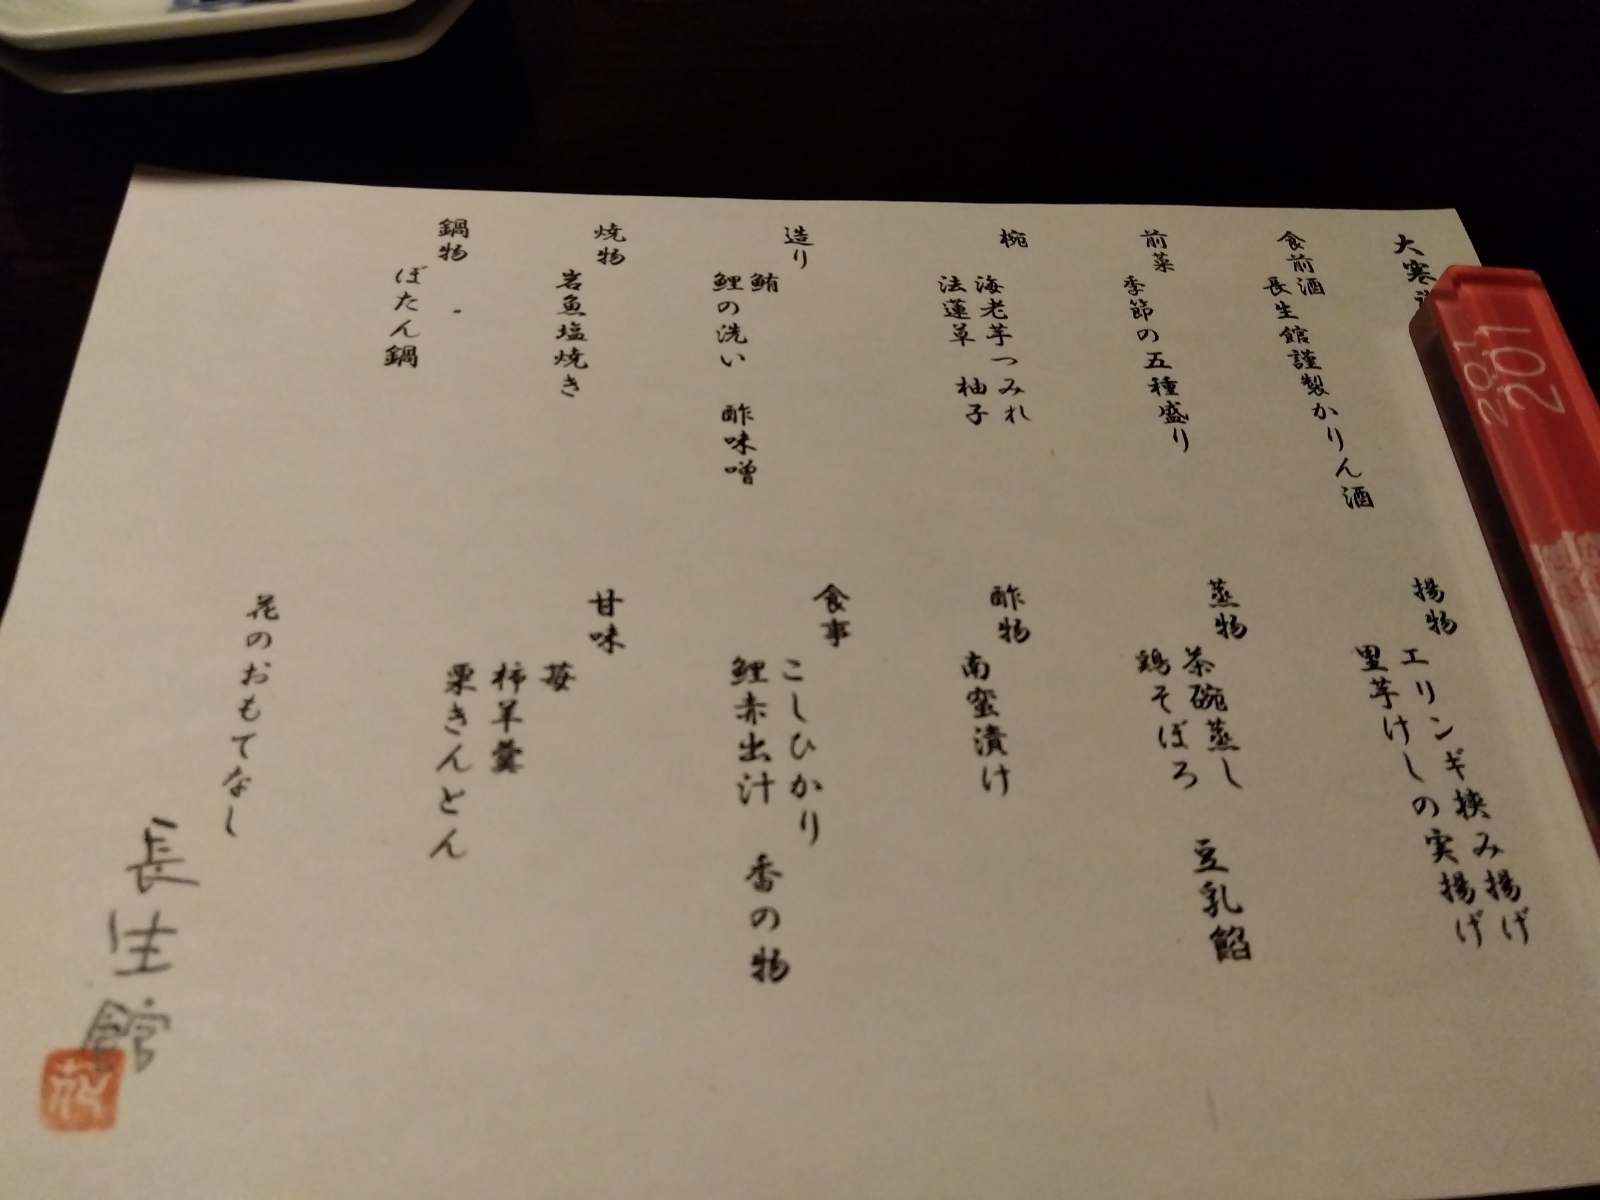 大寒
食前酒
長生館謹製かりん酒
前菜
季節の五種盛り
椀
海老芋つみれ
法蓮草 柚子
造り
鮪
鯉の洗い 酢味噌
焼物
岩魚塩焼き
鍋物
ぼたん鍋
揚物
エリンギ挟み揚げ
里芋けしの実揚げ
蒸物
茶碗蒸し
鶏そぼろ 豆乳餡
酢物
南蛮漬け
食事
こしひかり
鯉赤出汁 香の物
甘味
苺
柿羊羹
栗きんとん
花のおもてなし
長生館
201
201